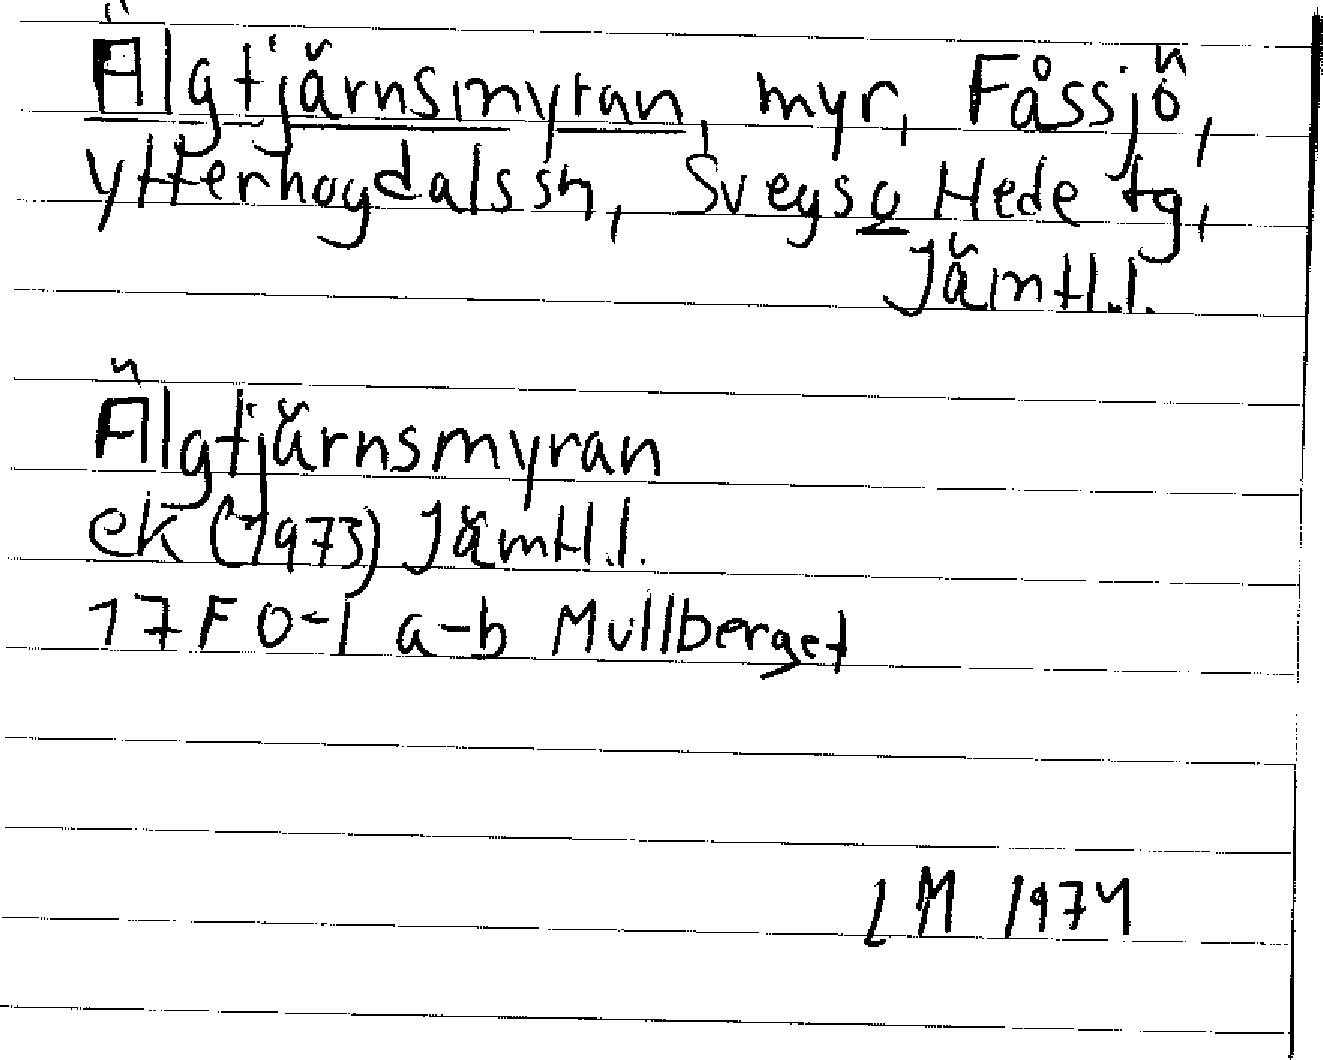 Älgtjärnsmyran, myr, Fåssjö,
Ytterhogdals sn, Svegs o Hede tg,
Jämtl.l.
Älgtjärnsmyran
ek (1973) Jämtl.l.
17F 0-1 a-b Mullberget
LM 1974